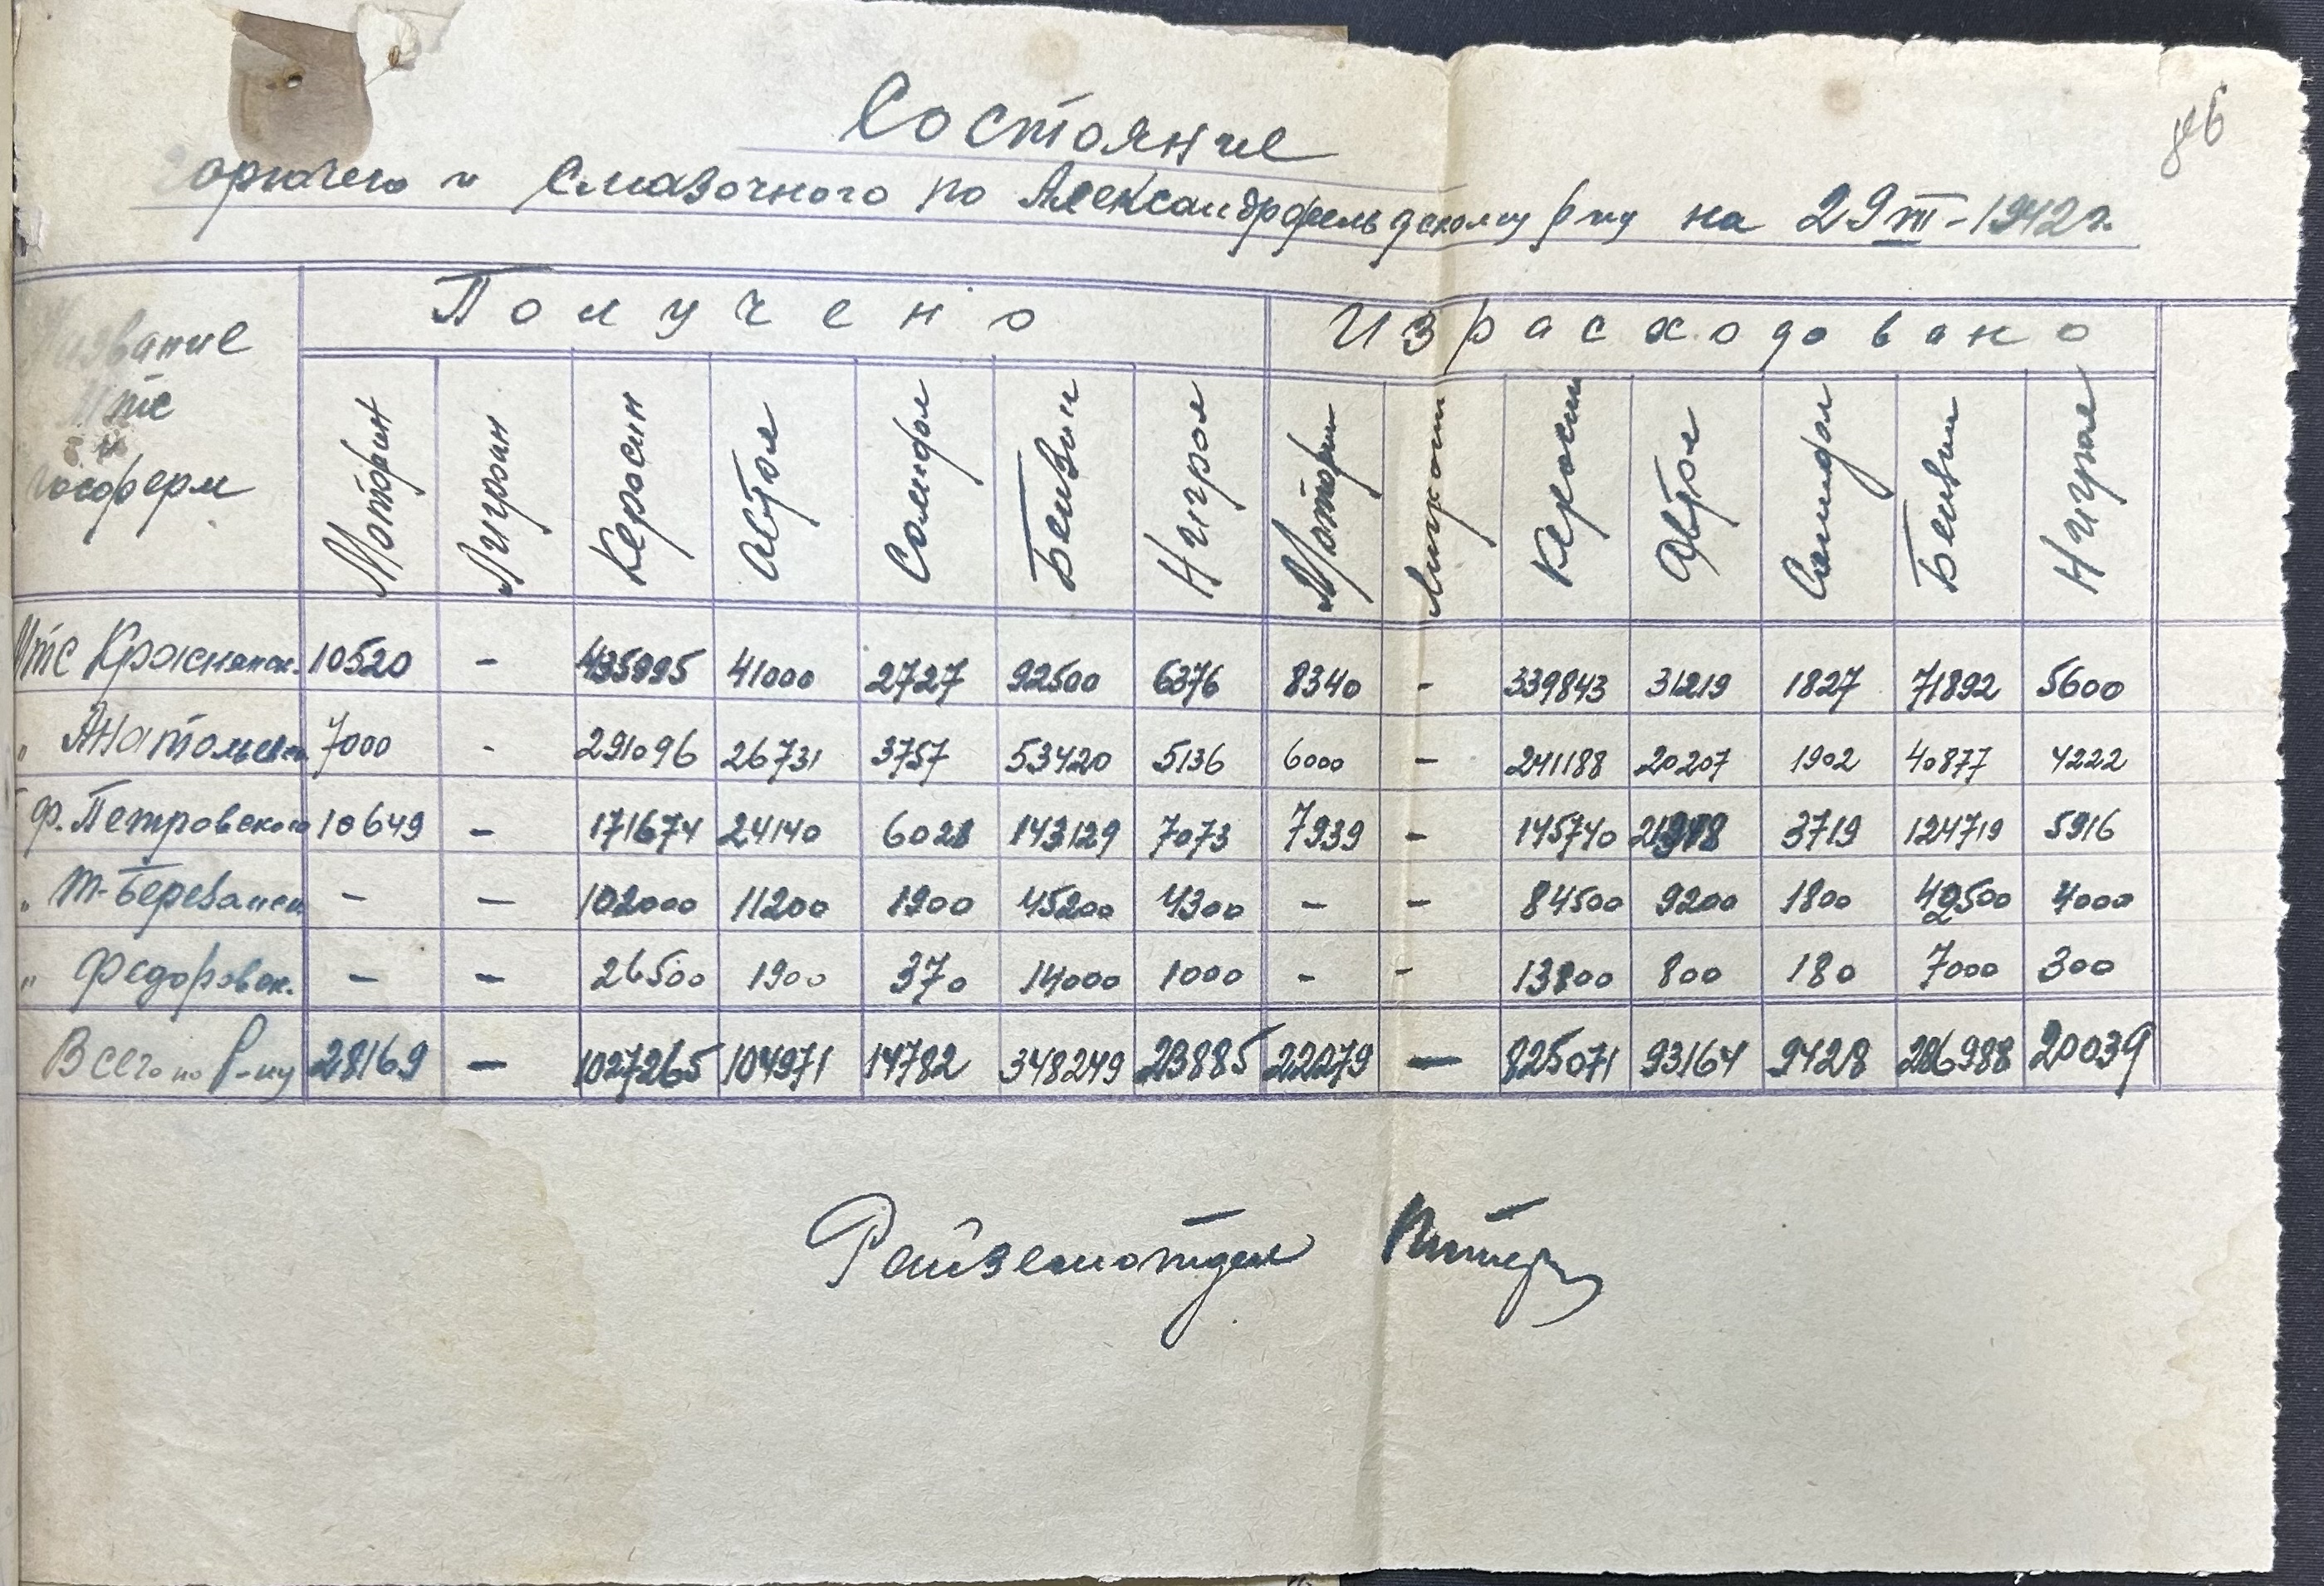 86
Состояние
горючего и смазочного по Александрфельдскому р-ну на 29 III-1942 г.
Название МТС и госферм
Получено
Израсходовано
Моторин Лигроин Керосин Автол Солидол Бензин Нигрол Моторин Лигроин Керосин Автол Солидол Бензин Нигрол
МТС Краснянск. 10520 - 435995 41000 2727 92500 6376 8340 - 339843 31219 1827 71892 5600
" Анатольевск 7000 - 291096 26731 3757 53420 5136 6000 - 241188 20207 1902 40877 4222
Ф. Петровского 10649 - 171674 24140 6028 143129 7073 7939 - 145740 3719 124719 5916
" Т-Березанск - - 102000 11200 1900 45200 4300 - - 84500 9200 1800 42500 4000
" Федоровск. - - 26500 1900 370 14000 1000 - - 13800 800 180 7000 300
Всего по р-ну 28169 - 1027265 104971 14782 348249 23885 22279 - 825071 93164 9428 286988 20039
Райземотдел